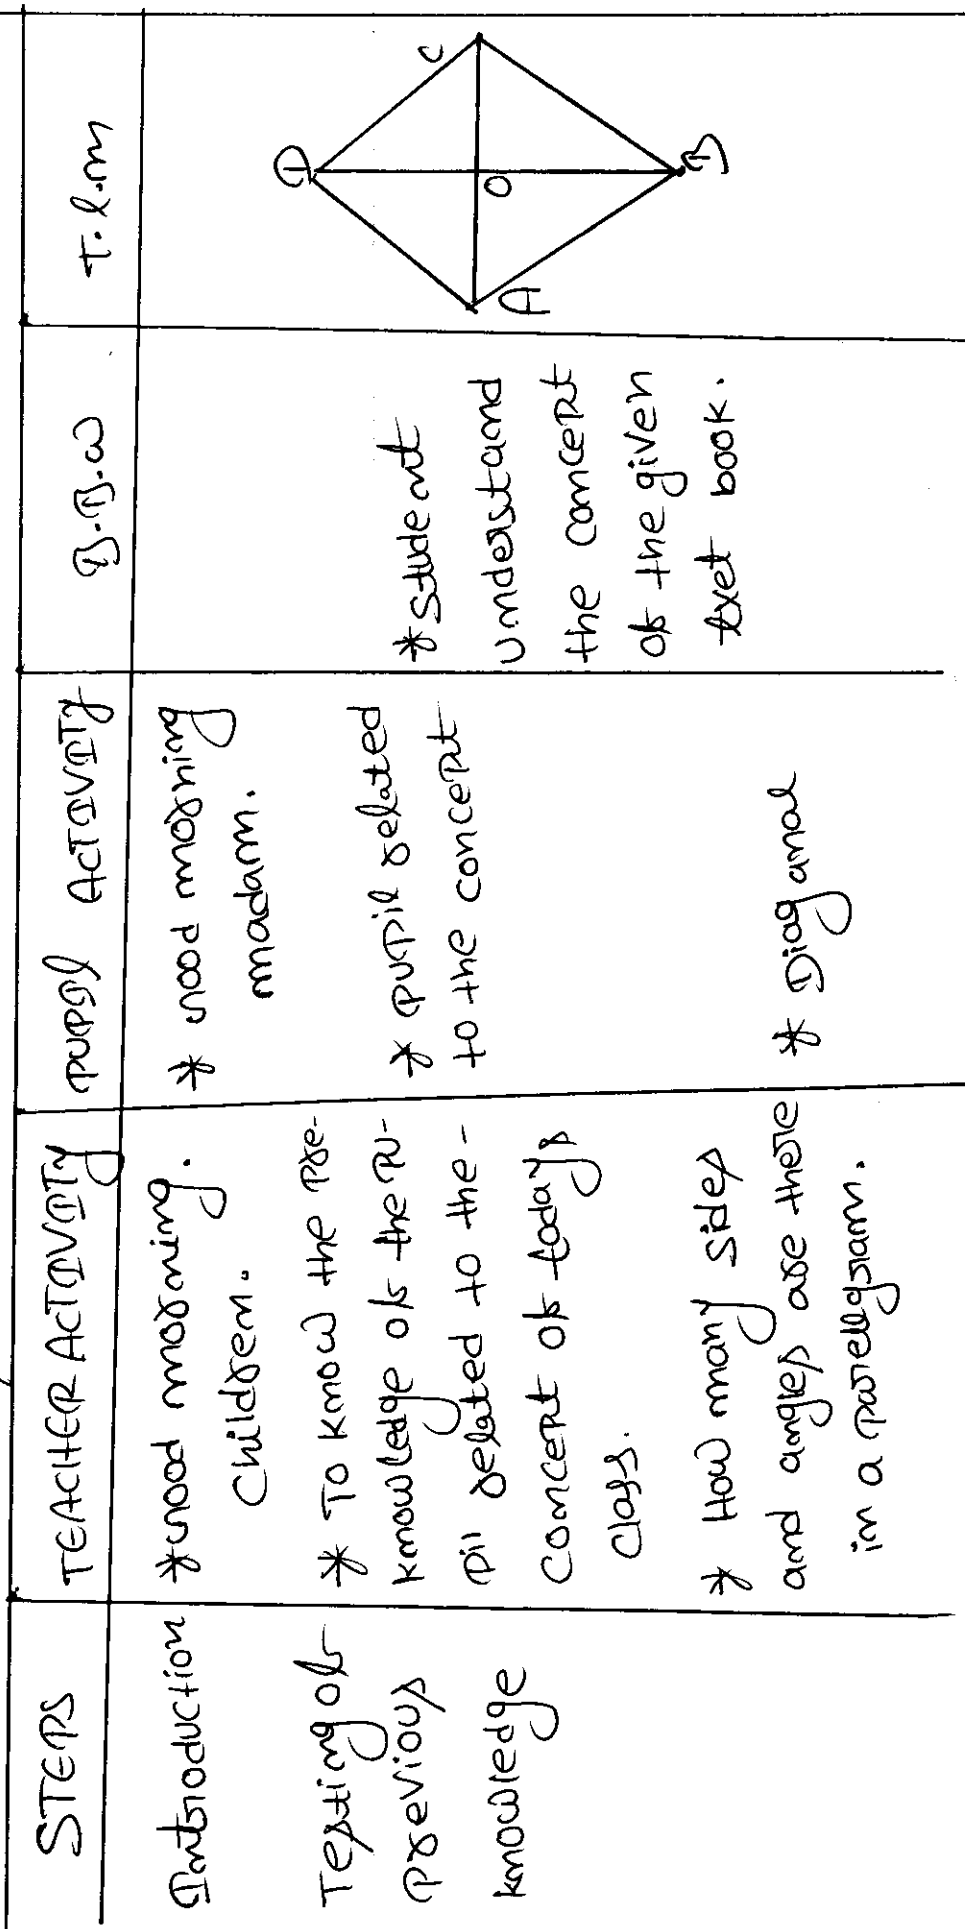 STEPS
TEACHER ACTIVITY
PUPIL ACTIVITY
B.B.W
T.L.M
Introduction
*Good morning.
Children.
* Good morning
madam.
Testing of
previous
knowledge
* To know the pre-
knowledge of the pu-
pil related to the -
concept of todays
class.
* pupil related
to the concept
*student
understand
the concept
of the given
texet book.
* How many sides
and angles are there
in a parellgram.
* Diagonal
D
C
O
A
B